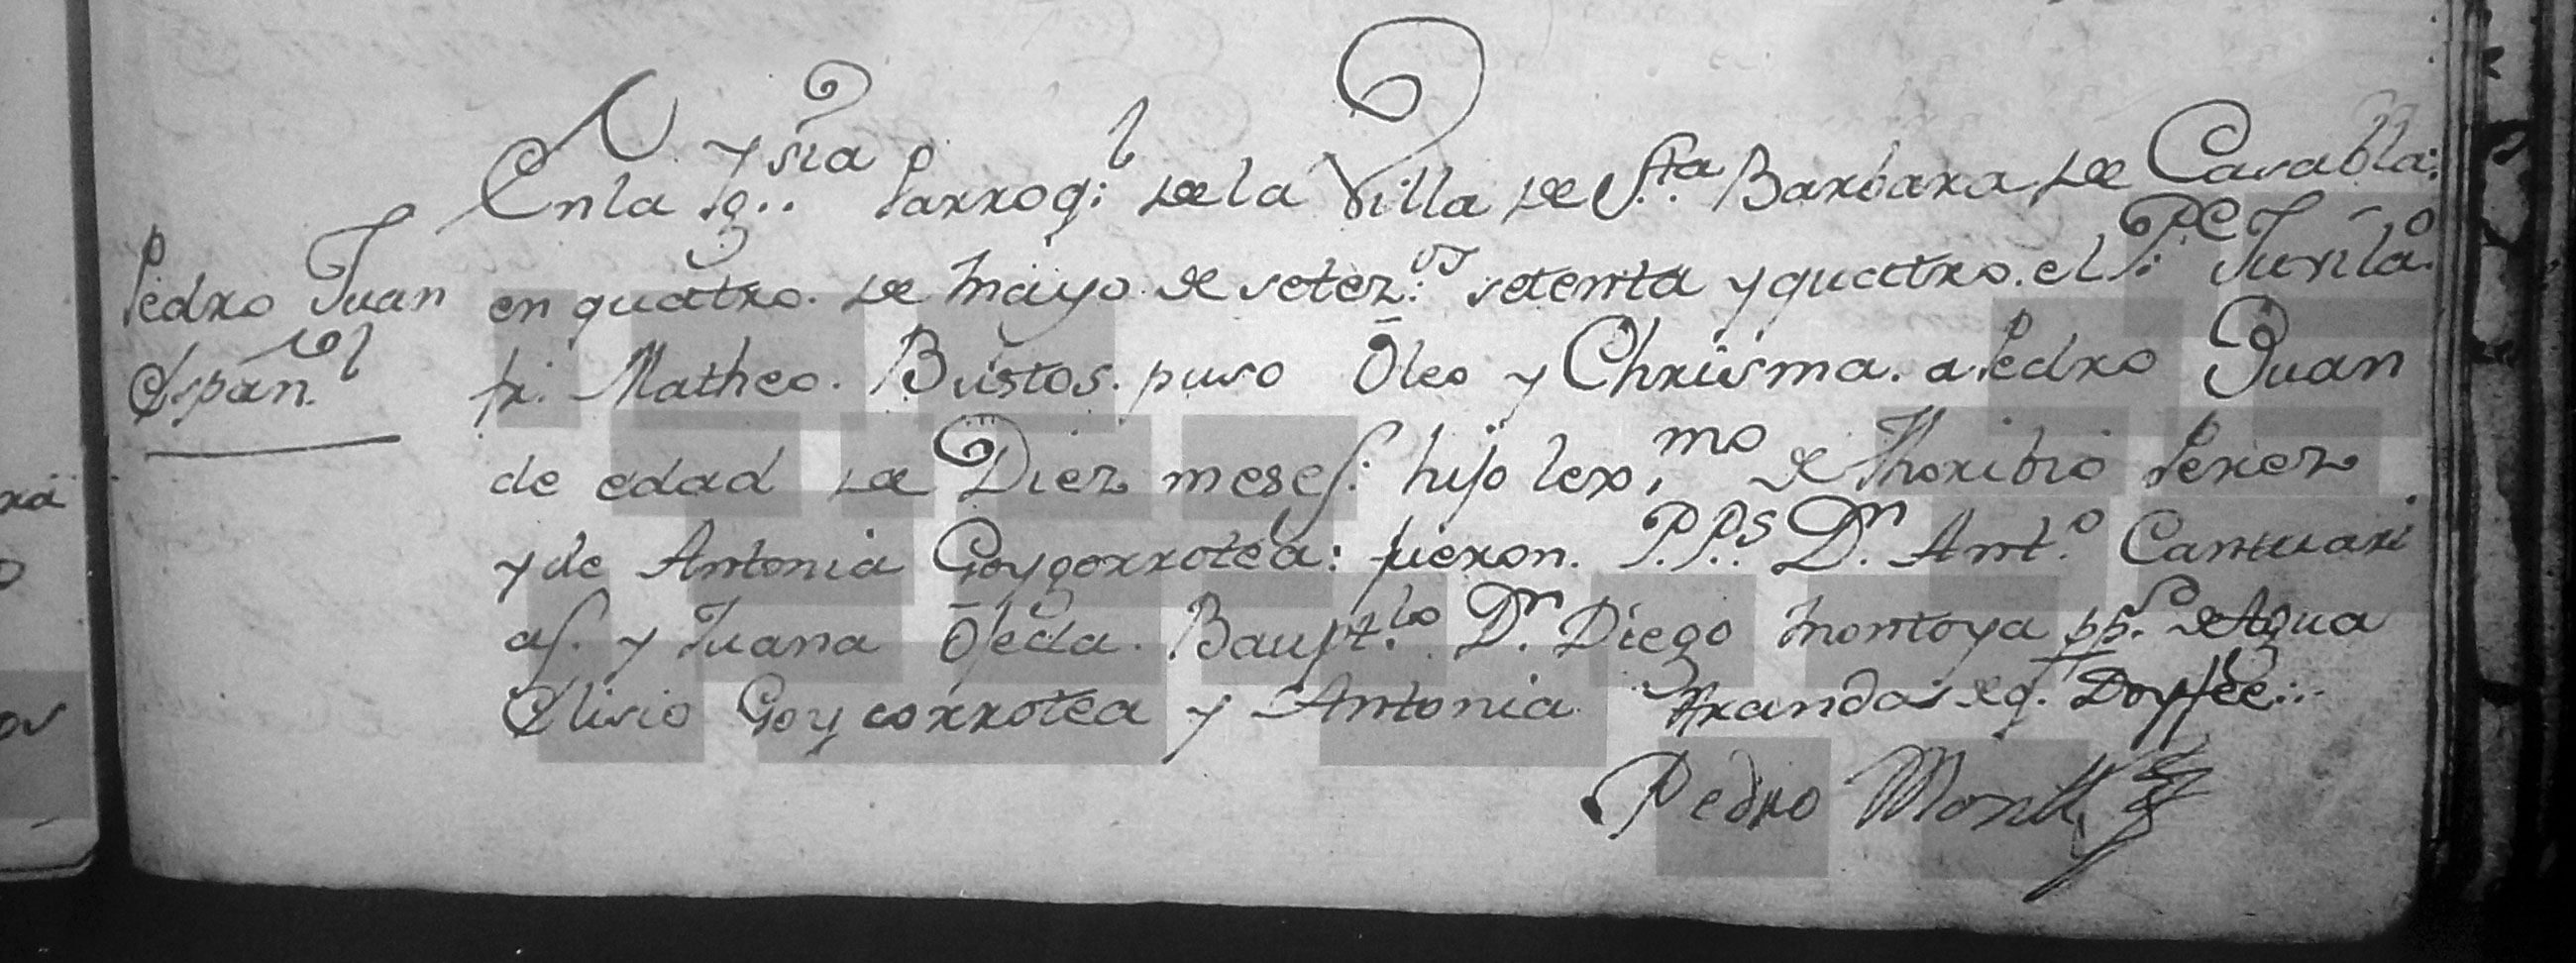 Pedro Juan
Españ.l
En la Yg.sia Parroq.l de la Villa de S.ta Barbara de Casabla:
en quatro. de Mayo de setez.os setenta y quatro. el P.e Jubilao.
fr. Matheo. Bustos. puso Oleo y Chrisma. a Pedro Juan
de edad de Diez meses. hijo lex.mo de Thoribio Perez
y de Antonia Goygorrotea: fueron. P.P.s D.n Ant.o Cantuari
as. y Juana Ojeda. Baupt.lo D.n Diego Montoya pp.s de Agua
Elisio Goycorrotea y Antonia Aranda: de q. Doyfee:..
Pedro Montt